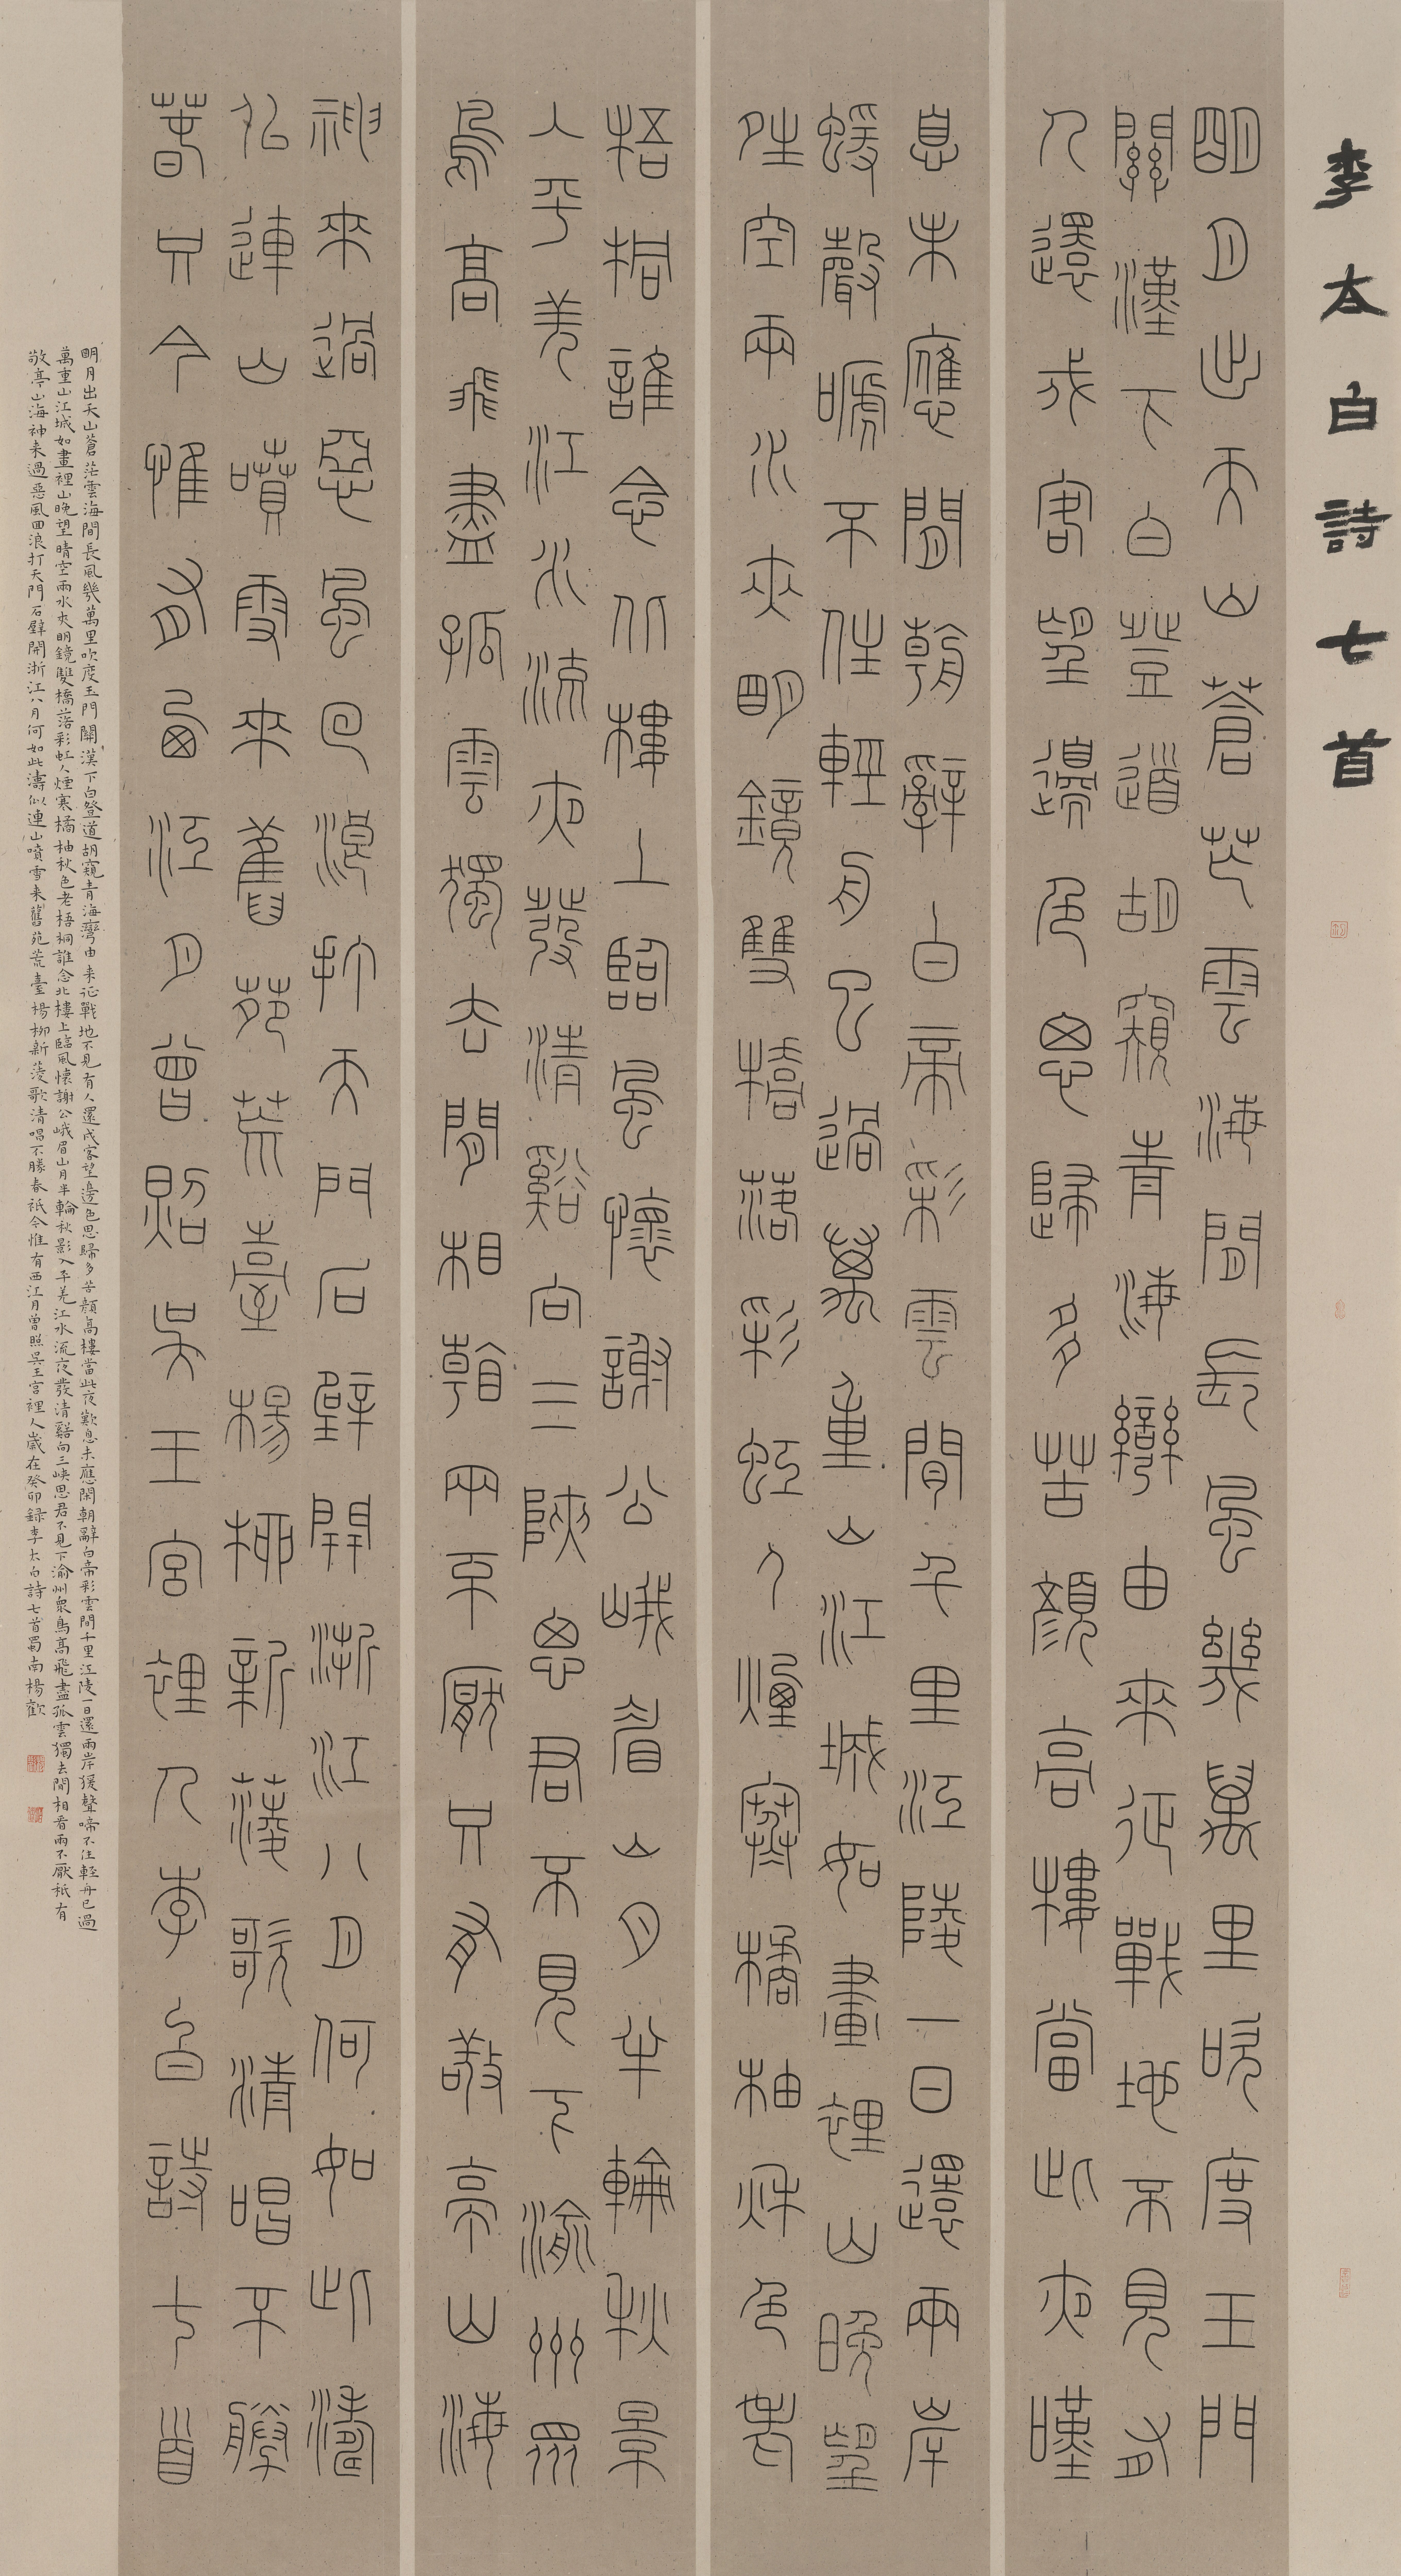 李太白詩七首
明月出天山蒼茫雲海間長風幾萬里吹度玉門
關漢下白登道胡窺青海灣由來征戰地不見有
人還戍客望邊色思歸多苦顏高樓當此夜嘆
息未應閒朝辭白帝彩雲間千里江陵一日還兩岸
猨聲嗁不住輕舟已過萬重山江城如畫裡山晚望
晴空兩水夾明鏡雙橋落彩虹人煙寒橘柚秋色老
梧桐誰念北樓上臨風懷謝公峨眉山月半輪秋景
入平羌江水流夜發清谿向三陝思君不見下渝州眾
鳥高飛盡孤雲獨去閒相看兩不厭只有敬亭山海
神來過惡風回浪打天門石壁開浙江八月何如此濤
似連山噴雪來舊苑荒臺楊柳新蔆歌清唱不勝
春只今惟有西江月曾照吳王宮裡人李白詩七首
明月出天山蒼茫雲海間長風幾萬里吹度玉門關漢下白登道胡窺青海灣由来征戰地不見有人還戍客望邊色思歸多苦顏高樓當此夜歎息未應閑朝辭白帝彩雲間千里江陵一日還兩岸猨聲啼不住輕舟已過
萬重山江城如畫裡山晚望晴空兩水夾明鏡雙橋落彩虹人煙寒橘柚秋色老梧桐誰念北樓上臨風懷謝公峨眉山月半輪秋影入平羌江水流夜發清谿向三峽思君不見下渝州眾鳥高飛盡孤雲獨去閒相看兩不厭祗有
敬亭山海神来過惡風回浪打天門石壁開浙江八月何如此濤似連山噴雪来舊苑荒臺楊柳新蔆歌清唱不勝春祗今惟有西江月曾照吳王宮裡人歲在癸卯録李太白詩七首蜀南楊歡